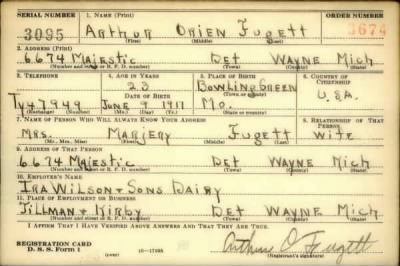 SERIAL NUMBER 1. NAME (Print) ORDER NUMBER
3095 ARTHUR ORIEN FUGETT 3674
(First) (Middle) (Last)
2. ADDRESS (Print)
6674 MAJESTIC DET WAYNE MICH
(Number and street or R. F. D. number) (Town) (County) (State)
3. TELEPHONE 4. AGE IN YEARS 5. PLACE OF BIRTH 6. COUNTRY OF CITIZENSHIP
23 BOWLING GREEN
DATE OF BIRTH (Town or county) U.S.A.
TY47949 JUNE 9 1917 MO.
(Exchange) (Number) (Mo.) (Day) (Yr.) (State or country)
7. NAME OF PERSON WHO WILL ALWAYS KNOW YOUR ADDRESS 8. RELATIONSHIP OF THAT PERSON
MRS. MARJERY FUGETT WIFE
(Mr., Mrs., Miss) (First) (Middle) (Last)
9. ADDRESS OF THAT PERSON
6674 MAJESTIC DET WAYNE MICH
(Number and street or R. F. D. number) (Town) (County) (State)
10. EMPLOYER'S NAME
IRA WILSON & SONS DAIRY
11. PLACE OF EMPLOYMENT OR BUSINESS
TILLMAN & KIRBY DET WAYNE MICH
(Number and street or R. F. D. number) (Town) (County) (State)
I AFFIRM THAT I HAVE VERIFIED ABOVE ANSWERS AND THAT THEY ARE TRUE.
REGISTRATION CARD
D. S. S. Form 1 (over) 16—17105 Arthur O Fugett
(Registrant's signature)